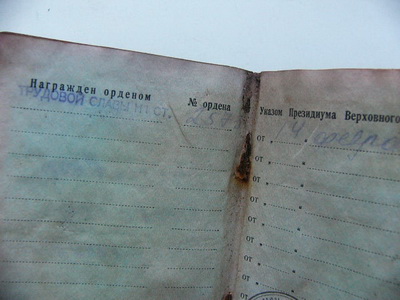 Награжден орденом
№ ордена
Указом Президиума Верховного
ТРУДОВОЙ СЛАВЫ III СТ.
от " 14 "
от "
от "
от "
от "
от "
от "
от "